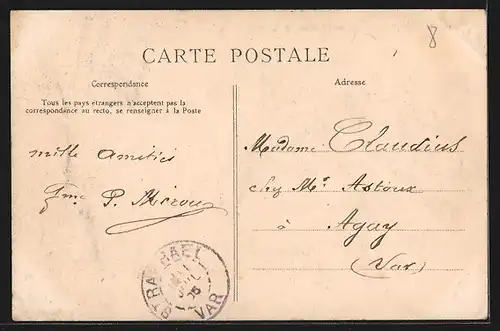 8
CARTE POSTALE
Correspondance
Adresse
Tous les pays étrangers n'acceptent pas la
correspondance au recto, se renseigner à la Poste
mille amitiés
P. Mérou
Madame Claudius
chez Mr Astoux
à Agay
(Var)
ST RAPHAEL
VAR